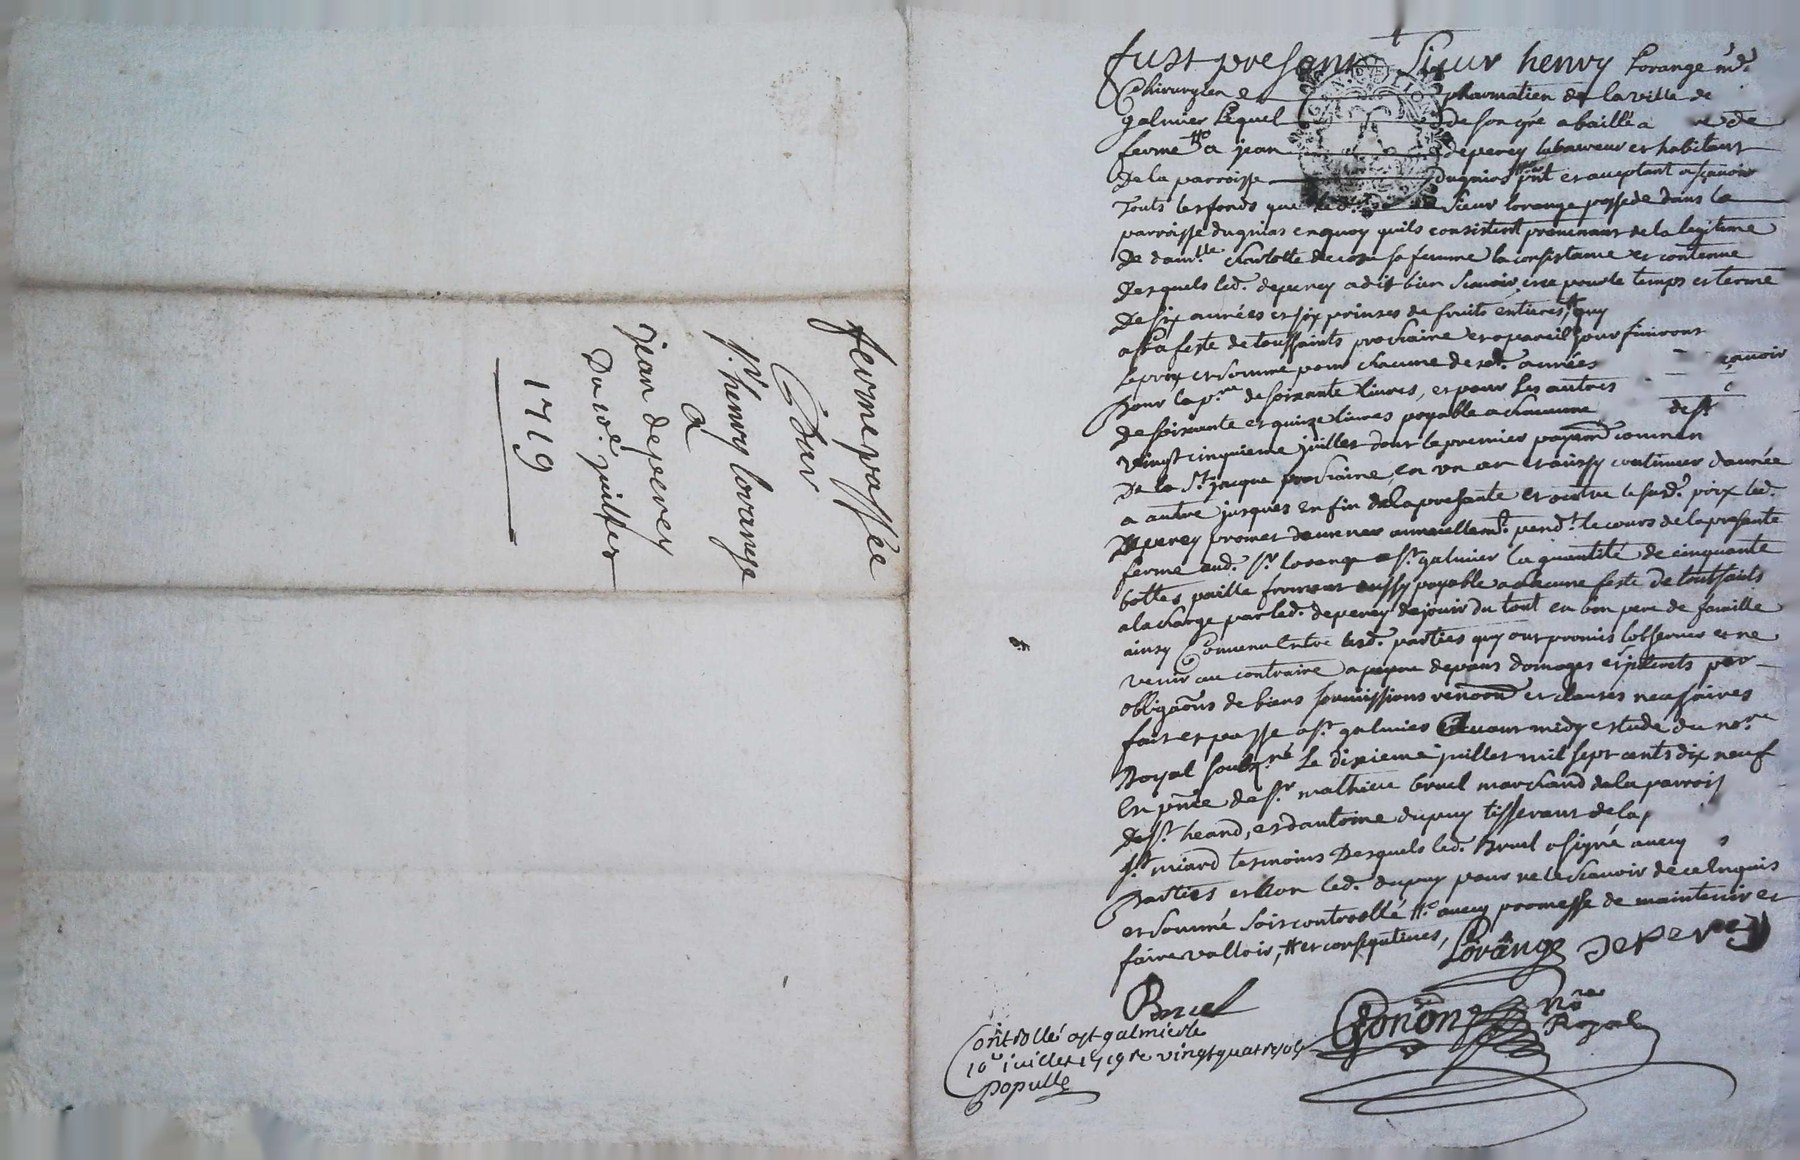 ferme passée
Par
Sr. henry lorange
a
jean deperey
Du 10e. juillet
1719
fust present Sieur henry Lorange md.
Chirurgien e pharmatien de la ville de
galmier Lequel de son gré a baillé a de
ferme a jean deperey laboureur et habitant
De la parroisse pnt et acceptant asçavoir
Touts les fonds que led. Sieur lorange possede dans la
parroisse en quoy quils consistent provenant de la legitime
de damlle. charlotte sa femme la consistance et contenue
Desquels led. deperey a dit bien scavoir, et ce pour le temps et terme
De six années et six prinses de fruits entieres, quy
a la feste de toussaints prochaine et a pareil jour finiront
Le prix et somme pour chacune desd. années sçavoir
Pour la pre. de soixante livres, et pour les autres
de soixante et quinze livres payable a chacune feste
vingt cinquieme juillet dont le premier payemt. commen
De la St. jacque prochaine, en un an et ainssy continuer dannée
a autre jusques en fin de la presante et outre le susd. prix led.
Deperey promet donner annuellemt. pend.t le cours de la presante
ferme aud. Sr. lorange a St. galmier la quantité de cinquante
bottes paille froment aussy payable a chacune feste de toutsaints
a la charge par led. deperey de jouir du tout en bon pere de famille
ainsy Convenu entre lesd. parties quy ont promis lobserver et ne
venir au contraire a peyne depans domages et interets par
obligaons de biens soumissions renoond et clauses necessaires
fait et passe a St. galmier avant midy estude du nore
Royal soubzné Le dixieme juillet mil sept cents dix neuf
En pnce de Sr. mathieu bruel marchand de la parrois
de St. heand, et dantoine dupuy tisserant de la
St. miard tesmoins Desquels led. Bruel a signé avecq
Parties et non led. dupuy pour ne le scavoir de ce enquis
et sommé soit controollé avecq promesse de maintenir et
faire valloir, et consequences,
Lorange deperey
Bruel
Ponson nore
Royal
Controllé a st galmier le
10e juillet 1719 Re vingt quatre sols
Populle